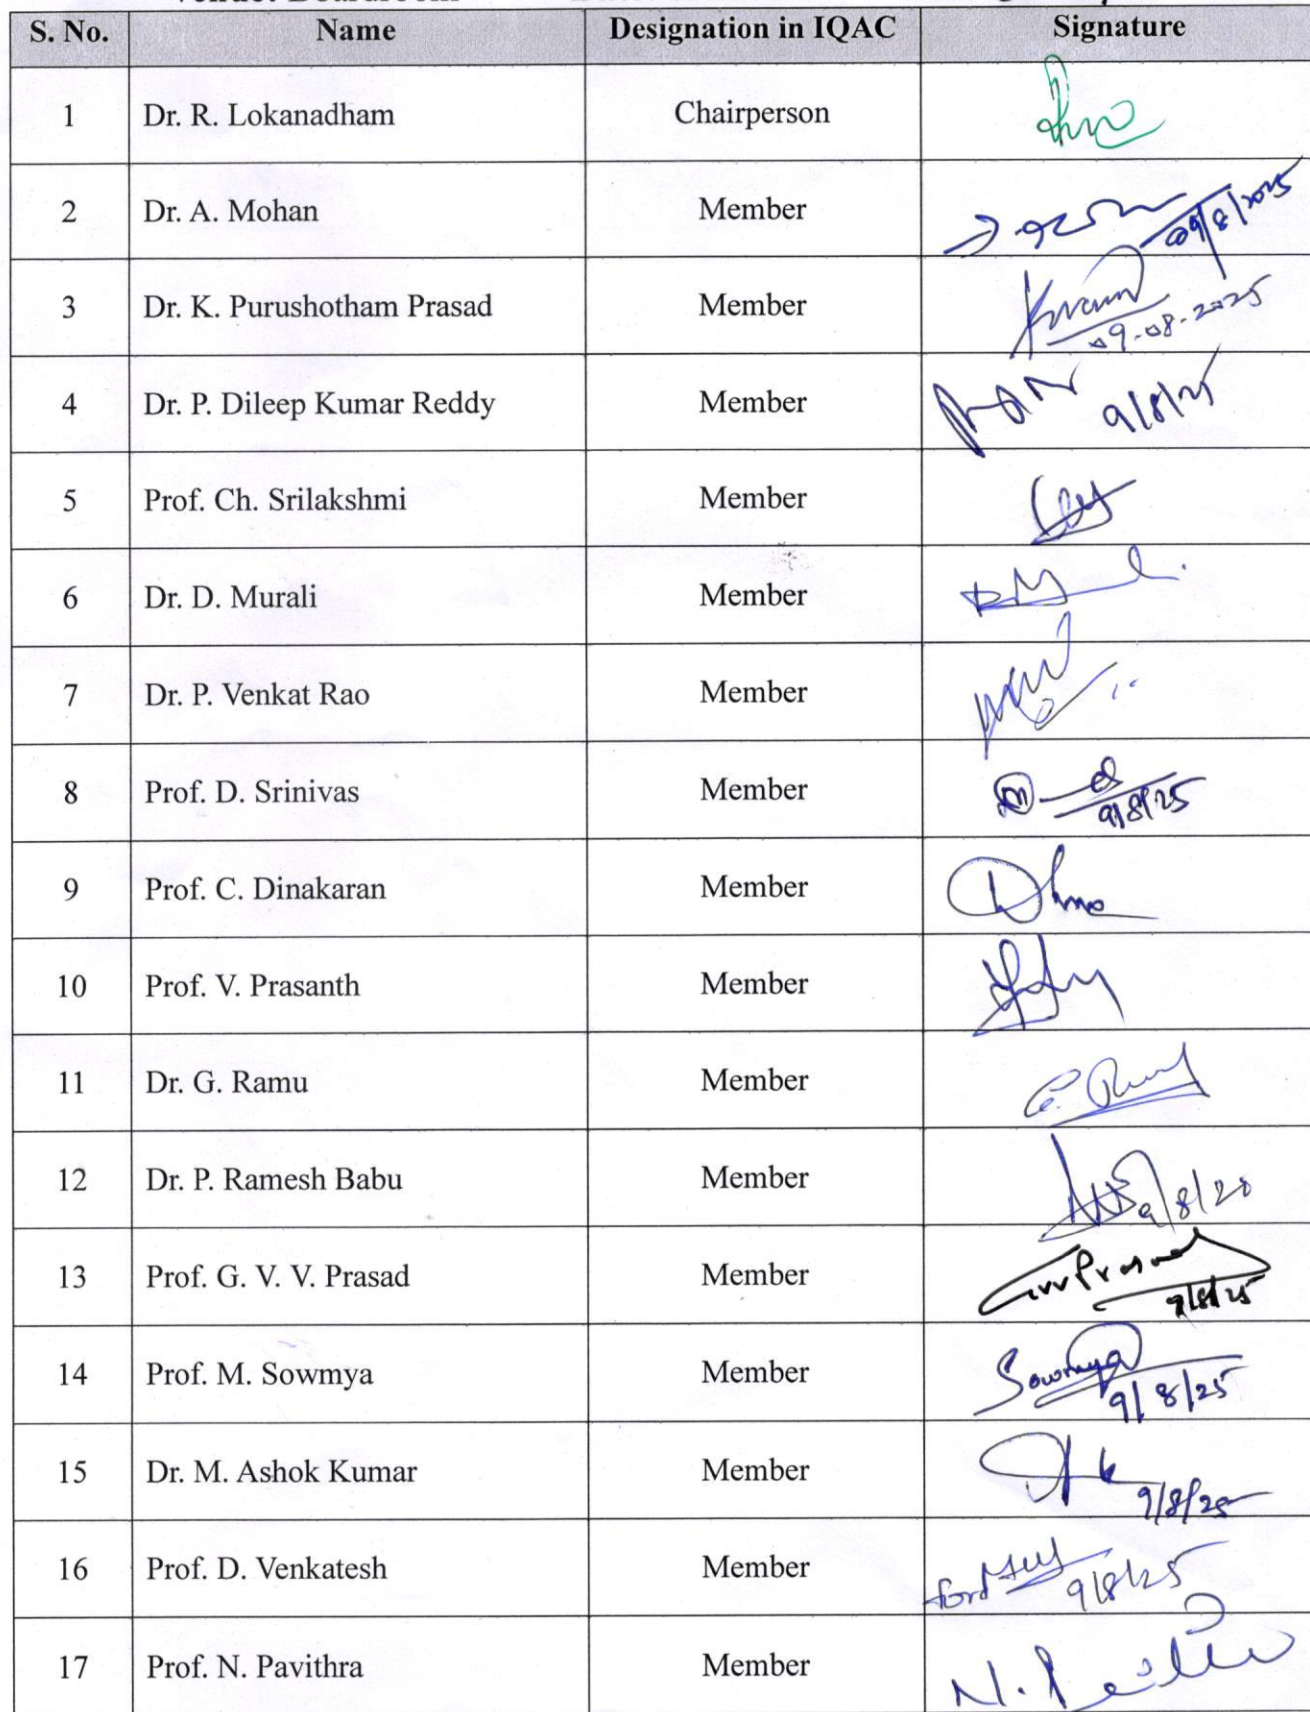 Venue: Boardroom
S. No. Name Designation in IQAC Signature
1 Dr. R. Lokanadham Chairperson
2 Dr. A. Mohan Member 09/8/2025
3 Dr. K. Purushotham Prasad Member 09-08-2025
4 Dr. P. Dileep Kumar Reddy Member 9/8/25
5 Prof. Ch. Srilakshmi Member
6 Dr. D. Murali Member
7 Dr. P. Venkat Rao Member
8 Prof. D. Srinivas Member 9/8/25
9 Prof. C. Dinakaran Member
10 Prof. V. Prasanth Member
11 Dr. G. Ramu Member
12 Dr. P. Ramesh Babu Member 9/8/20
13 Prof. G. V. V. Prasad Member GVVPrasad 9/8/25
14 Prof. M. Sowmya Member Sowmya 9/8/25
15 Dr. M. Ashok Kumar Member 9/8/25
16 Prof. D. Venkatesh Member 9/8/25
17 Prof. N. Pavithra Member